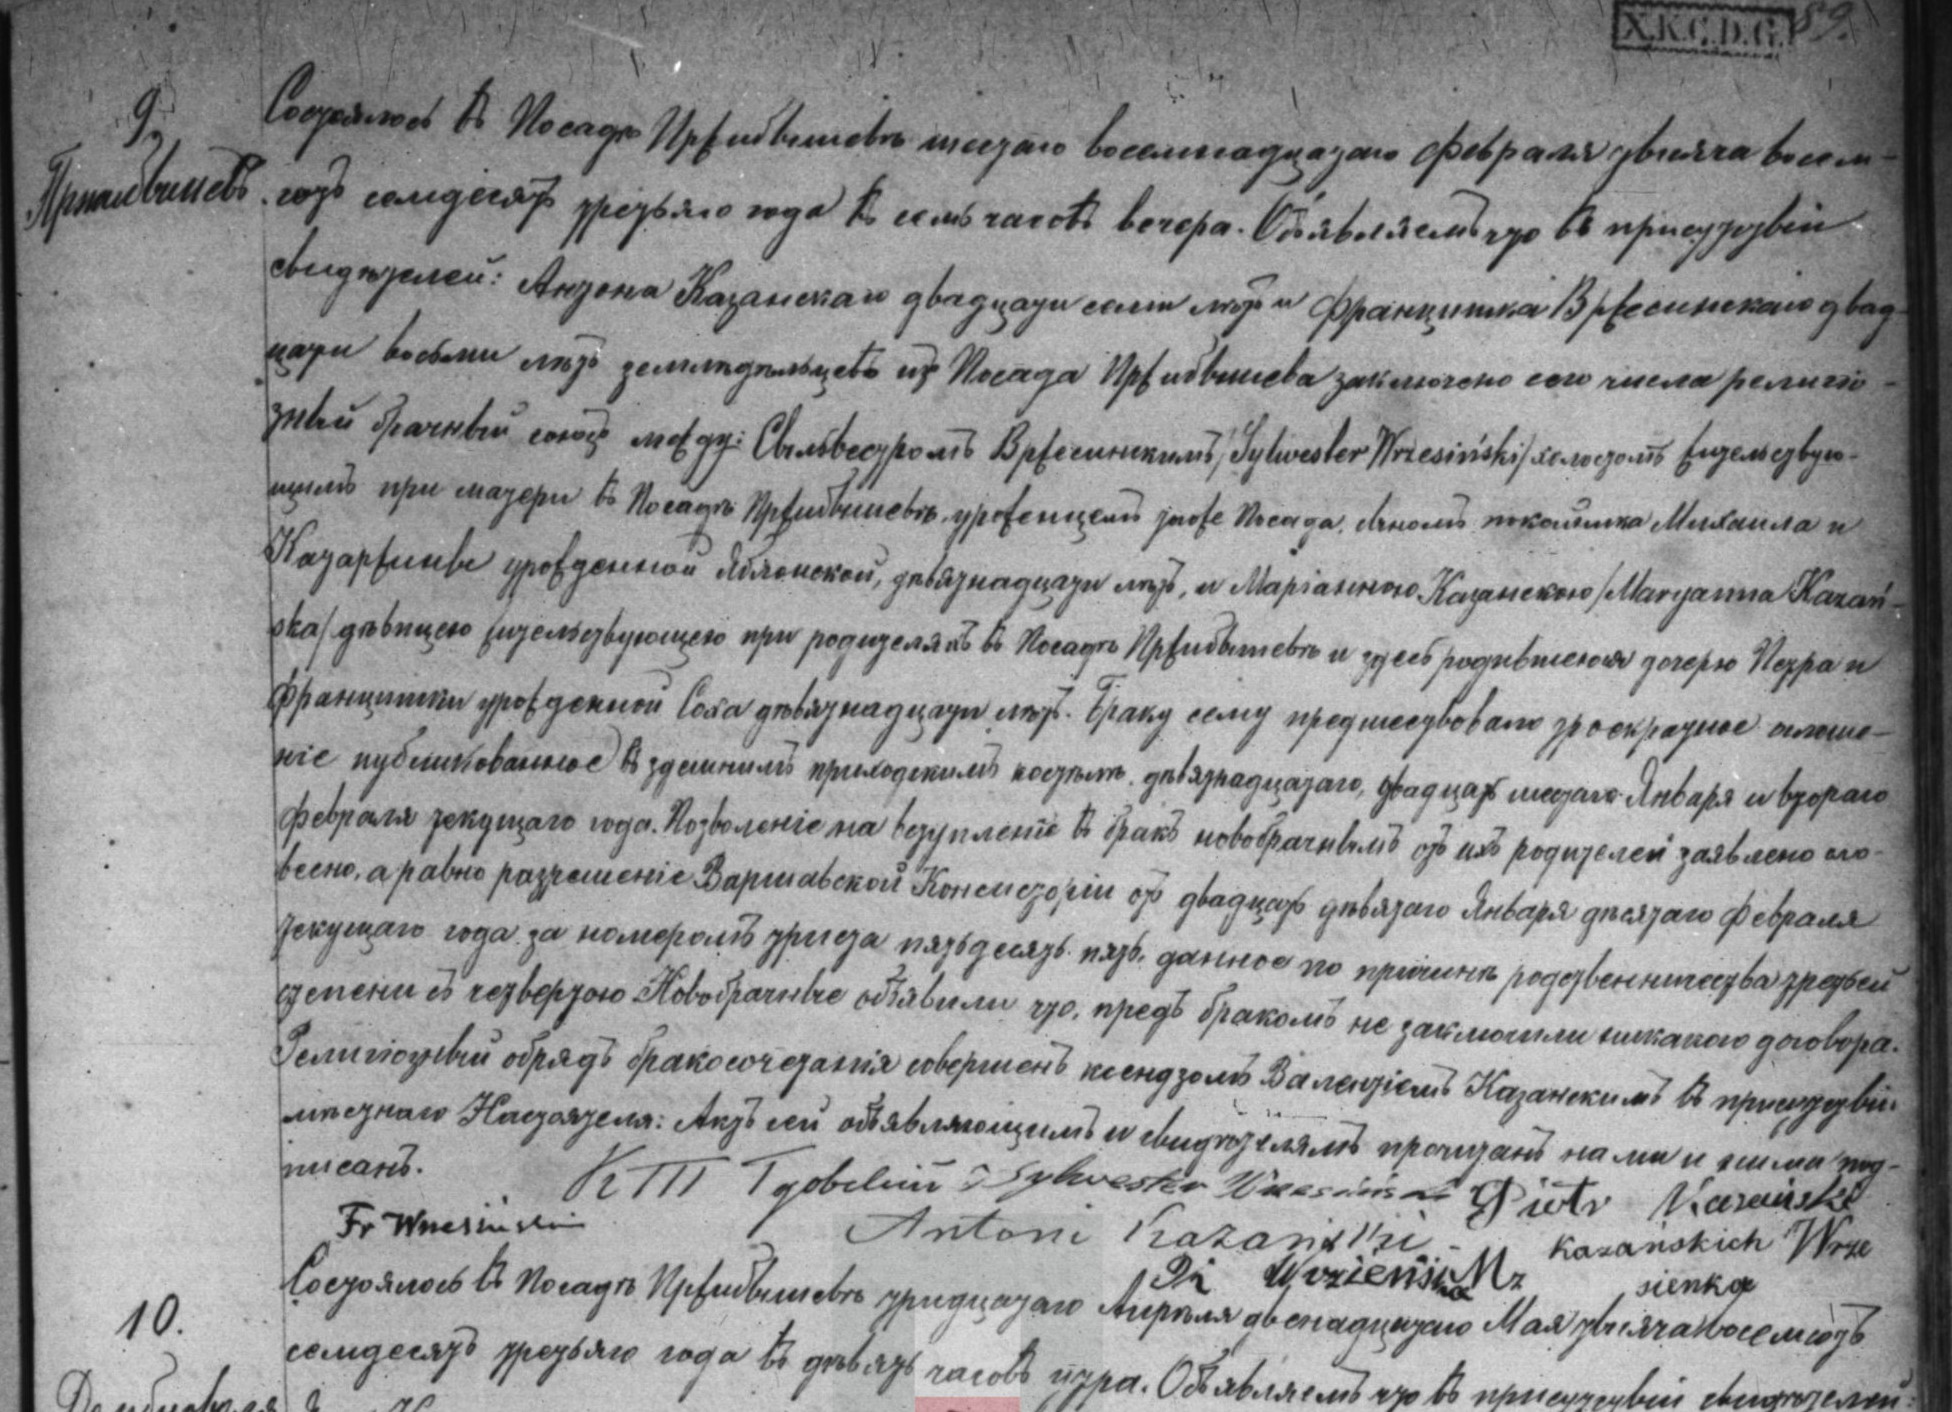 X.K.C.D.G. 89.
9,
Пржибышевъ.
Состоялось въ Посадѣ Пржибышевѣ шестаго восемнадцатаго Февраля тысяча восем-
сотъ семдесятъ третьяго года въ семь часовъ вечера. Объявляемъ что въ присутствіи
свидѣтелей: Антона Казанскаго двадцати семи лѣтъ и Францишка Вржесинскаго двад-
цати восьми лѣтъ земледѣльцевъ изъ Посада Пржибышева заключено сего числа религіо-
зный брачный союзъ между: Сыльвестромъ Вржесинскимъ /Sylwester Wrzesiński/ холостомъ жительствую-
щимъ при матери въ Посадѣ Пржибышевѣ, уроженцемъ тоже Посада, сыномъ покойника Михаила и
Катаржины урожденной Яблонской, дѣвятнадцати лѣтъ, и Маріанною Казанскою /Maryanna Kazań-
ska/ дѣвицею жительствующею при родителяхъ въ Посадѣ Пржибышевѣ и здесь родившеюся дочерю Петра и
Францишки урожденной Соха дѣвятнадцати лѣтъ. Браку сему предшествовало троекратное оглаше-
ніе публикованное въ здешнимъ приходскимъ костѣлѣ, дѣвятнадцатаго, двадцать шестаго Января и втораго
Февраля текущаго года. Позволеніе на вступленіе въ бракъ новобрачнымъ отъ ихъ родителей заявлено сло-
весно, а равно разрешеніе Варшавской Консисторіи отъ двадцать дѣвятаго Января дѣсятаго Февраля
текущаго года за номеромъ триста пятьдесятъ пять, данное по причинѣ родственничества третьей
степени съ четвертою Новобрачные объявили что, предъ бракомъ не заключили никакого договора.
Религіозный обрядъ бракосочетанія совершенъ ксендзомъ Валентіемъ Казанскимъ въ присутствіи
мѣстнаго Настоятеля: Актъ сей объявляющимъ и свидѣтелямъ прочитанъ нами и ними под-
писанъ.
Sylwester Wrzesiński Piotr Kazański
Fr Wrzesiński Antoni Kazański Kazańskich Wrze
sienka
10.
Состоялось въ Посадѣ Пржибышевѣ тридцатаго Апрѣля двенадцатаго Мая тысяча восемсотъ
семдесятъ третьяго года въ дѣвять часовъ утра. Объявляемъ что въ присутствіи свидѣтелей: